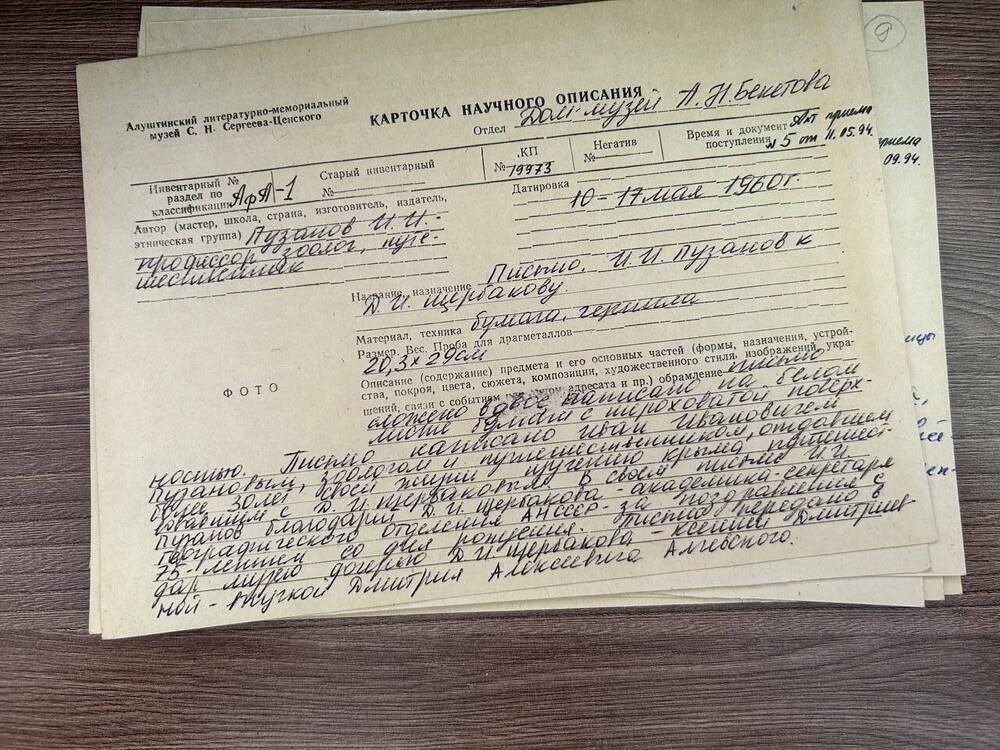 Алуштинский литературно-мемориальный
музей С. Н. Сергеева-Ценского
КАРТОЧКА НАУЧНОГО ОПИСАНИЯ
Отдел Дом-музей А.Н.Бекетова
Инвентарный №
раздел по
классификации АфА-1
Старый инвентарный
№
КП
№ 19973
Негатив
№
Время и документ Акт приема
поступления №5 от 11.05.94.
Автор (мастер, школа, страна, изготовитель, издатель,
этническая группа) Пузанов И.И. -
профессор зоолог, путе-
шественник
Датировка
10-17 мая 1960г.
Название, назначение Письмо. И.И. Пузанов к
Д.И. Щербакову.
Материал, техника бумага, чернила
Размер. Вес. Проба для драгметаллов
20,3 х 29см
Описание (содержание) предмета и его основных частей (формы, назначения, устрой-
ства, покроя, цвета, сюжета, композиции, художественного стиля, изображений, укра-
шений, связи с событием адресата и пр.) обрамление Письмо
сложено вдвое написано на белом
листе бумаги с шероховатой поверх-
ФОТО
ностью. Письмо написано Иваном Ивановичем
Пузановым, зоологом и путешественником, отдавшим
более 30лет своей жизни изучению Крыма, путешест-
вовавшим с Д.И. Щербаковым. В своем письме И.И.
Пузанов благодарит Д.И. Щербакова - академика-секретаря
географического отделения АНСССР - за поздравления с
75-лением со дня рождения. Письмо передано в
дар музею дочерью Д.И. Щербакова - Ксенией Дмитриев
ной - внучкой Дмитрия Алексеевича Алчевского.
9
приема
09.94.